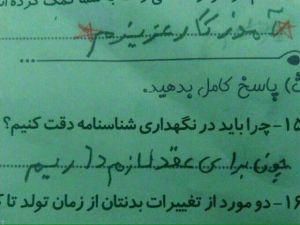 آهدزکارعزیزم
ث) پاسخ کامل بدهید.
۱۵- چرا باید در نگهداری شناسنامه دقت کنیم؟
چون برای عقد لازم داریم
۱۶- دو مورد از تغییرات بدنتان از زمان تولد تا